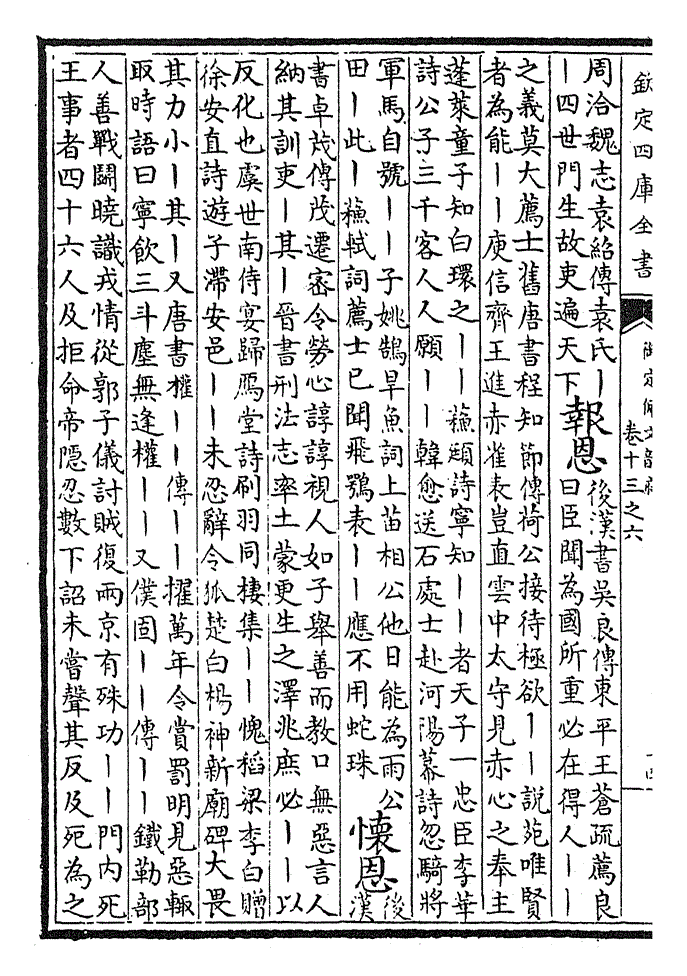 欽定四庫全書
御定佩文韻府
卷十三之六
周洽魏志袁紹傳袁氏丨
丨四世門生故吏遍天下
報恩
後漢書吳良傳東平王蒼疏薦良
曰臣聞為國所重必在得人丨丨
之義莫大薦士舊唐書程知節傳荷公接待極欲丨丨說苑唯賢
者為能丨丨庾信齊王進赤雀表豈直雲中太守見赤心之奉主
蓬萊童子知白環之丨丨蘓頲詩寧知丨丨者天子一忠臣李華
詩公子三千客人人願丨丨韓愈送石處士赴河陽幕詩忽騎將
軍馬自號丨丨子姚鵠旱魚詞上苗相公他日能為雨公
田丨此丨蘓軾詞薦士已聞飛鶚表丨丨應不用蛇珠
懷恩
後
漢
書卓茂傳茂遷密令勞心諄諄視人如子舉善而教口無惡言人
納其訓吏丨其丨晉書刑法志率土蒙更生之澤兆庶必丨丨以
反化也虞世南侍宴歸鴈堂詩刷羽同棲集丨丨愧稻梁李白贈
徐安直詩遊子滯安邑丨丨未忍辭令狐楚白楊神新廟碑大畏
其力小丨其丨又唐書權丨丨傳丨丨擢萬年令賞罰明見惡輒
取時語曰寧飲三斗塵無逢權丨丨又僕固丨丨傳丨丨鐵勒部
人善戰鬭曉識戎情從郭子儀討賊復兩京有殊功丨丨門內死
王事者四十六人及拒命帝隱忍數下詔未嘗聲其反及死為之